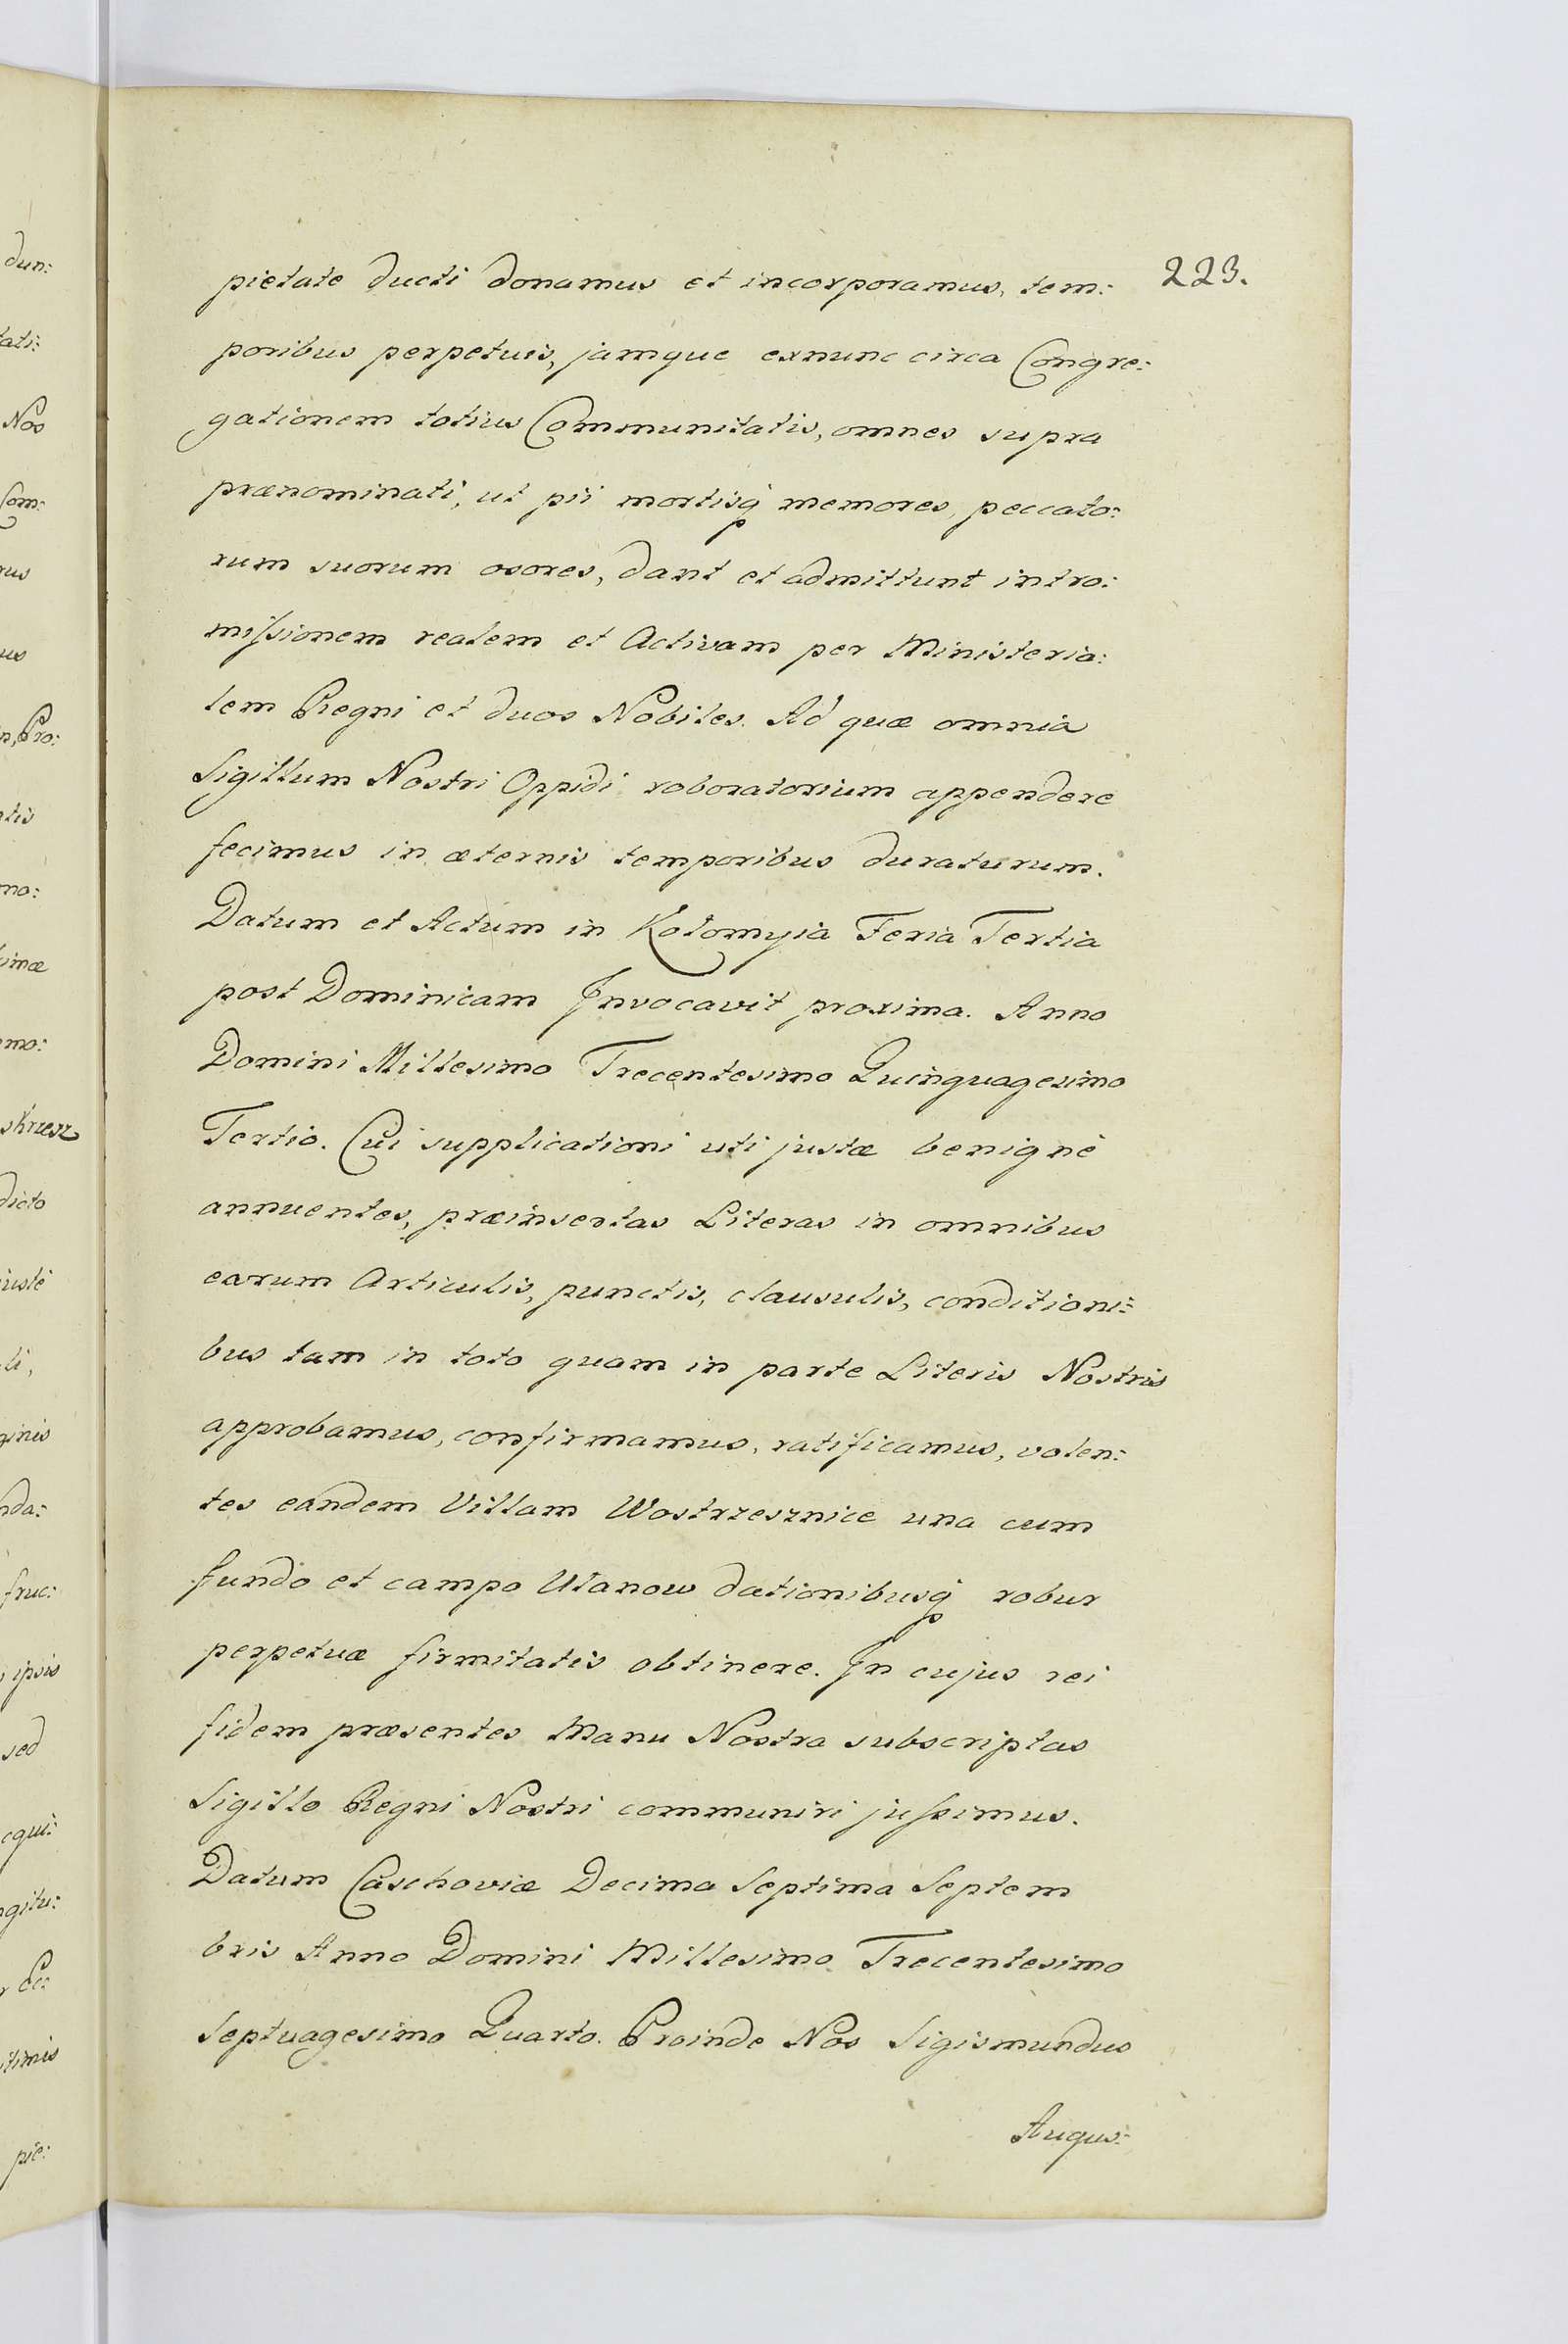 223.
pietate ducti donamus et incorporamus, tem:
poribus perpetuis, jamque exnunc circa Congre:
gationem totius Communitatis, omnes supra
prænominati, ut pii mortisq memores, peccato:
rum suorum osores, dant et admittunt intro:
missionem realem et Activam per Ministeria:
lem Regni et duos Nobiles. Ad quæ omnia
Sigillum Nostri Oppidi roboratorium appendere
fecimus in æternis temporibus duraturum.
Datum et Actum in Kołomyia Feria Tertia
post Dominicam Invocavit proxima. Anno
Domini Millesimo Trecentesimo Quinquagesimo
Tertio. Cui supplicationi uti justæ benignè
annuentes, præinsertas Literas in omnibus
earum Articulis, punctis, clausulis, conditioni:
bus tam in toto quam in parte Literis Nostris
approbamus, confirmamus, ratificamus, volen:
tes eandem Villam Wostrzesznice una cum
fundo et campo Utanow dationibusq robur
perpetuæ firmitatis obtinere. In cujus rei
fidem præsentes Manu Nostra subscriptas
Sigillo Regni Nostri communiri jussimus.
Datum Caschoviæ Decima Septima Septem
bris Anno Domini Millesimo Trecentesimo
Septuagesimo Quarto. Proinde Nos Sigismundus
Augus:
dun:
tati:
Nos
Com:
rus
us
Pro:
atis
mo:
simæ
emo:
skrzesz
dicto
justè
li,
ginis
nda:
fruc:
ipsis
sed
cqui:
ngitu:
itimis
pie: